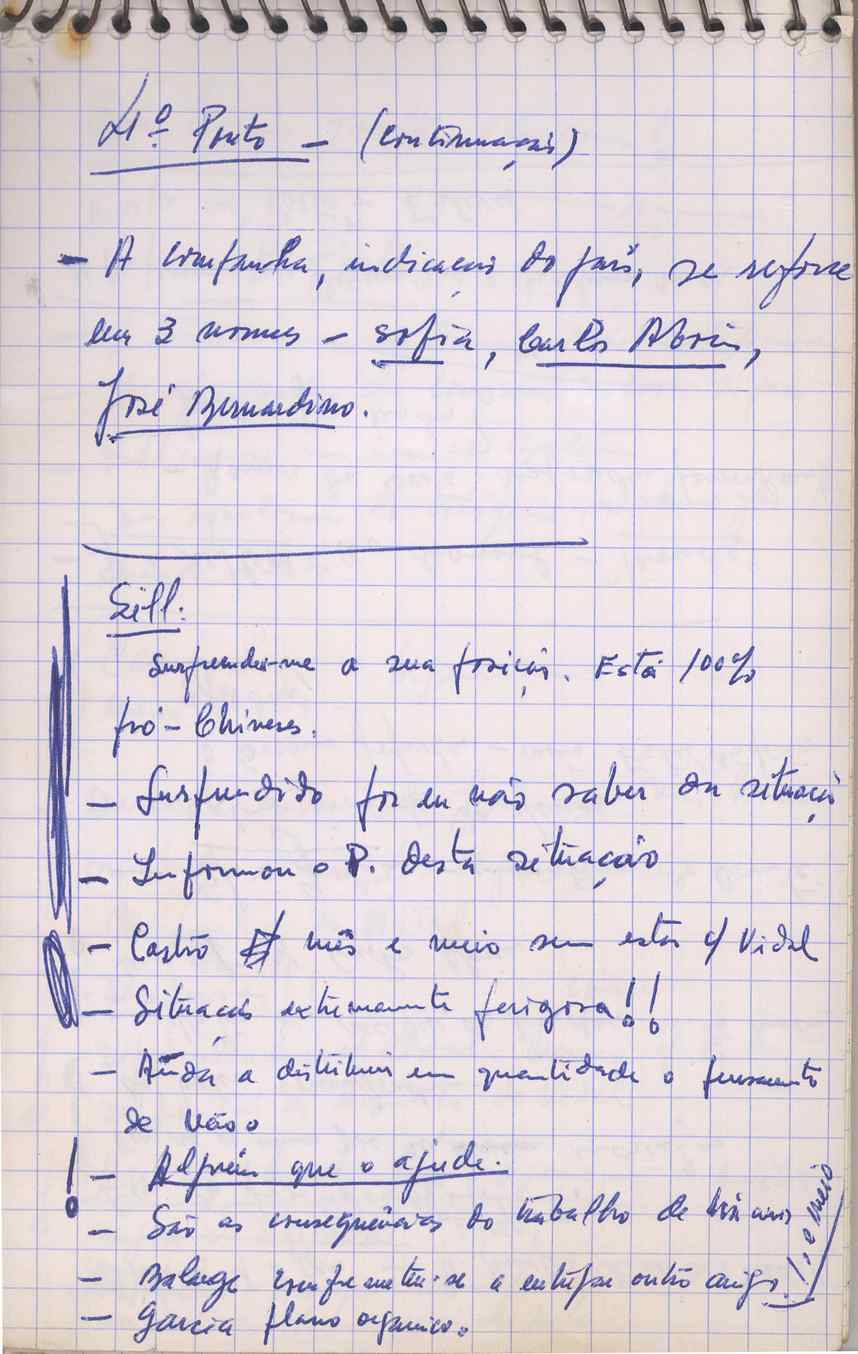 4º Ponto - (continuação)
- A companha, indicação do país, se reforce
em 3 nomes - Sofia, Carlos Aboim,
José Bernardino.
Gill:
Surpreendeu-me a sua posição. Está 100%
pró-Chineses.
- Surpreendido por eu não saber da situação
- Informou o P. desta situação
- Castro mês e meio sem estar c/ Vidal
- Situação extremamente perigosa!!
- Anda a distribuir em quantidade o pensamento
de Mao
! - Alguém que o ajude.
- São as consequências do trabalho de um ano
! e meio
- comprometeu-se a entregar outro amigo.
- Garcia plano orgânico.